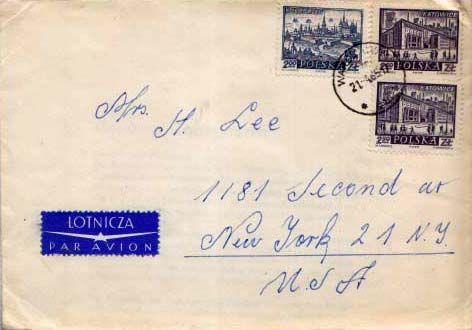 KATOWICE
2.20 POLSKA ZŁ
KATOWICE
2.20 POLSKA ZŁ
POLSKA ZŁ
Mrs.
H. Lee
1181 Second av
New York 21 N.Y.
USA
LOTNICZA
PAR AVION